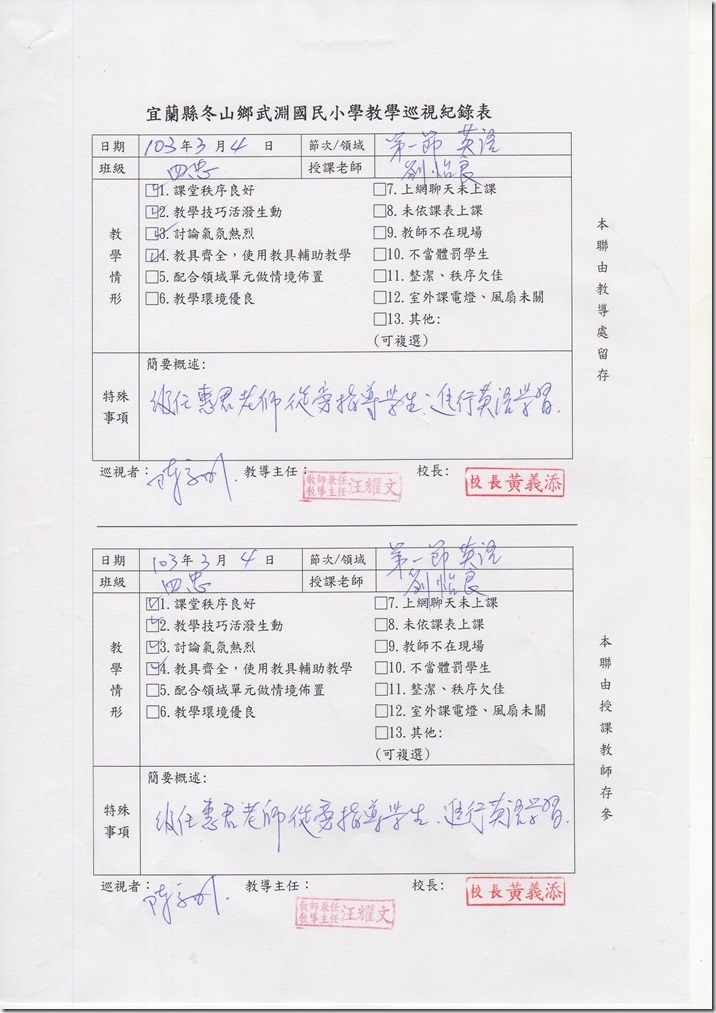 宜蘭縣冬山鄉武淵國民小學教學巡視紀錄表
日期 103年3月4日 節次/領域 第一節 英語
班級 四忠 授課老師 劉怡良
教學情形
☑1.課堂秩序良好 □7.上網聊天未上課
☑2.教學技巧活潑生動 □8.未依課表上課
☑3.討論氣氛熱烈 □9.教師不在現場
☑4.教具齊全，使用教具輔助教學 □10.不當體罰學生
□5.配合領域單元做情境佈置 □11.整潔、秩序欠佳
□6.教學環境優良 □12.室外課電燈、風扇未關
□13.其他:
(可複選)
特殊事項
簡要概述:
級任惠君老師從旁指導學生進行英語學習.
巡視者： 教導主任： 教師兼任教導主任 汪耀文 校長: 校長 黃義添
本聯由教導處留存
日期 103年3月4日 節次/領域 第一節 英語
班級 四忠 授課老師 劉怡良
教學情形
☑1.課堂秩序良好 □7.上網聊天未上課
☑2.教學技巧活潑生動 □8.未依課表上課
☑3.討論氣氛熱烈 □9.教師不在現場
☑4.教具齊全，使用教具輔助教學 □10.不當體罰學生
□5.配合領域單元做情境佈置 □11.整潔、秩序欠佳
□6.教學環境優良 □12.室外課電燈、風扇未關
□13.其他:
(可複選)
特殊事項
簡要概述:
級任惠君老師從旁指導學生.進行英語學習.
巡視者： 教導主任： 教師兼任教導主任 汪耀文 校長: 校長 黃義添
本聯由授課教師存參